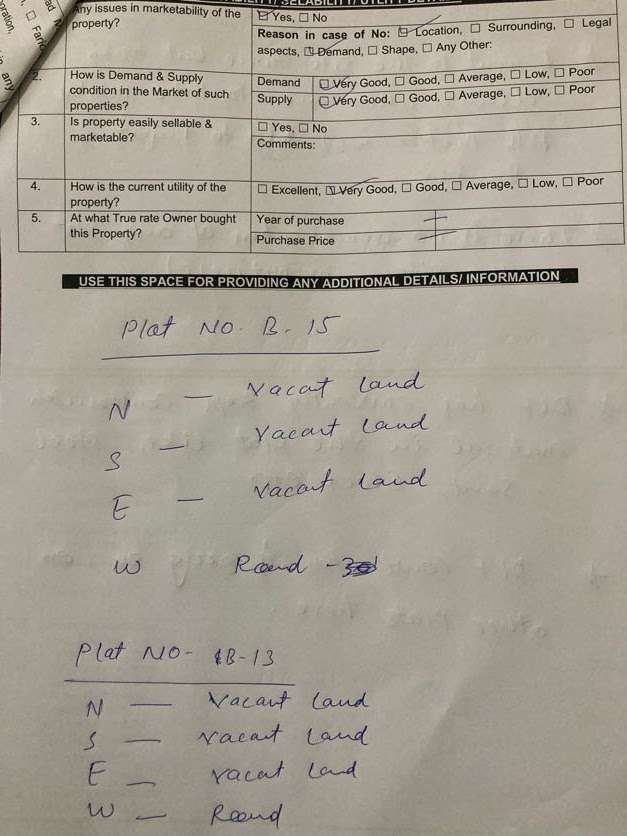 Any issues in marketability of the property?
☑ Yes, ☐ No
Reason in case of No: ☑ Location, ☐ Surrounding, ☐ Legal aspects, ☑ Demand, ☐ Shape, ☐ Any Other:
2. How is Demand & Supply condition in the Market of such properties?
Demand ☑ Very Good, ☐ Good, ☐ Average, ☐ Low, ☐ Poor
Supply ☑ Very Good, ☐ Good, ☐ Average, ☐ Low, ☐ Poor
3. Is property easily sellable & marketable?
☐ Yes, ☐ No
Comments:
4. How is the current utility of the property?
☐ Excellent, ☑ Very Good, ☐ Good, ☐ Average, ☐ Low, ☐ Poor
5. At what True rate Owner bought this Property?
Year of purchase
Purchase Price
USE THIS SPACE FOR PROVIDING ANY ADDITIONAL DETAILS/ INFORMATION
Plat NO. B-15
N — Vacat Land
S — Vacant Land
E — Vacant Land
W Roend -
Plat NO- B-13
N — Vacant Land
S — Vacant Land
E — Vacat Land
W — Roend